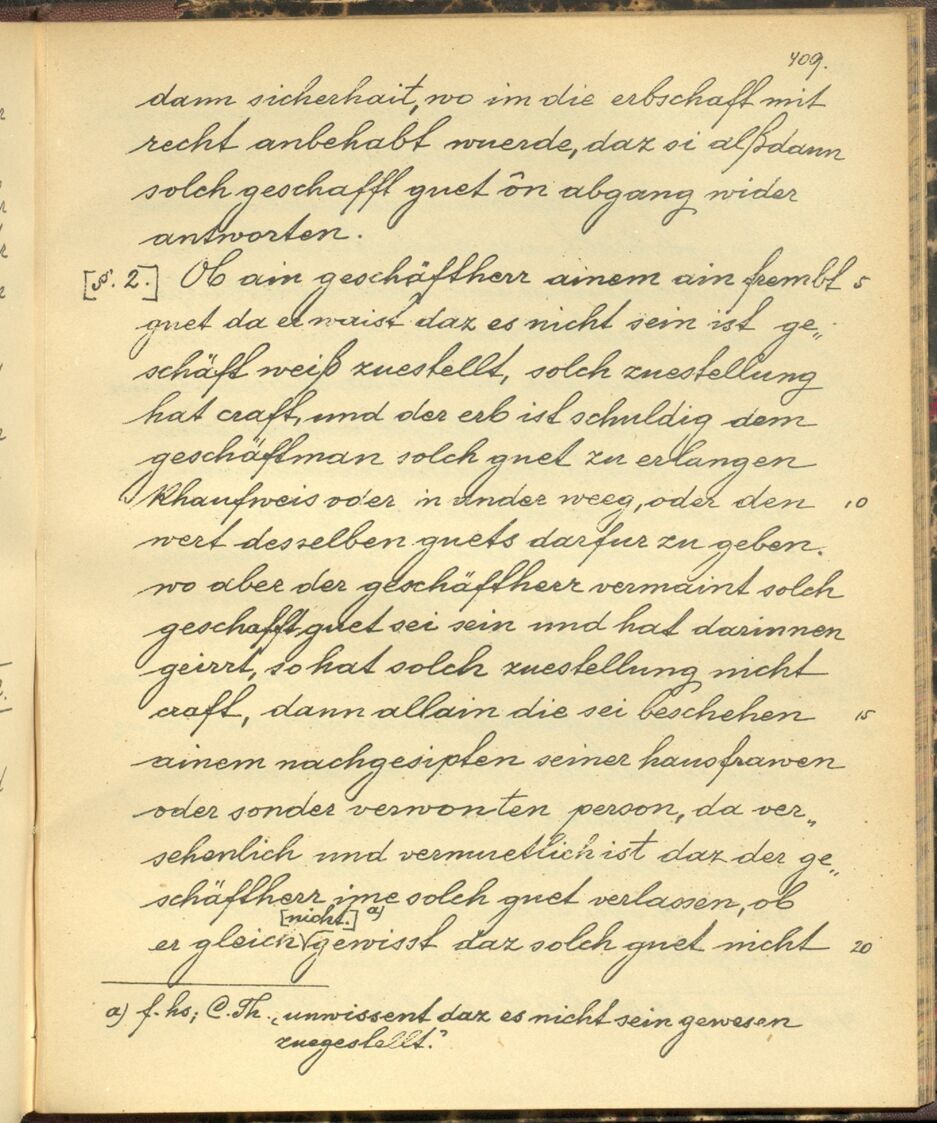 409.
dann sicherhait, wo im die erbschaft mit
recht anbehabt wuerde, daz si alßdann
solch geschafft guet ôn abgang wider
antworten.
[§. 2.] Ob ain geschäftherr ainem ain frembt 5
guet da er waist daz es nicht sein ist ge„
schäft weiß zuestellt, solch zuestellung
hat craft, und der erb ist schuldig dem
geschäftman solch guet zu erlangen
khaufweis oder in ander weeg, oder den 10
wert desselben guets darfur zu geben.
wo aber der geschäftherr vermaint solch
geschafft guet sei sein und hat darinnen
geirrt, so hat solch zuestellung nicht
craft, dann allain die sei beschehen 15
ainem nachgesipten seiner hausfrawen
oder sonder verwonten person, da ver„
sehenlich und vermuetlich ist daz der ge„
schäftherr ime solch guet verlassen, ob
[nicht.] a)
er gleich gewisst daz solch guet nicht 20
a) f. hs; C. Th. „unwissent daz es nicht sein gewesen
zuegestellt."